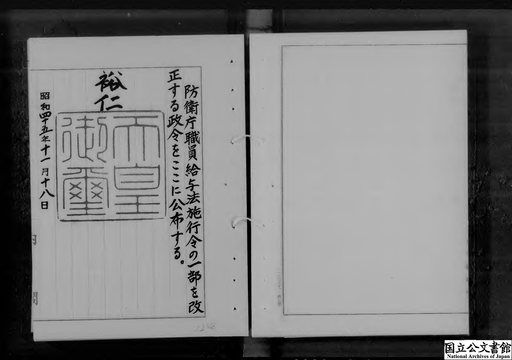 防衛庁職員給与法施行令の一部を改
正する政令をここに公布する。
裕仁
天皇
御璽
昭和四十五年十一月十八日
国立公文書館
National Archives of Japan